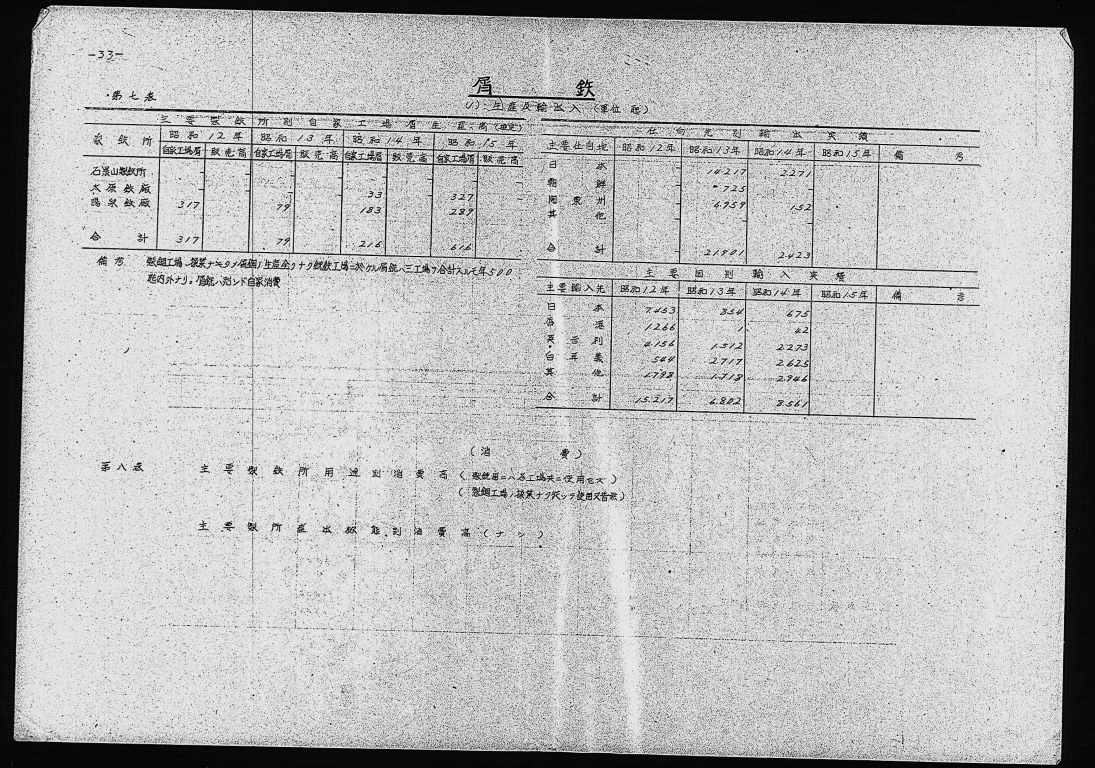 -33-
屑 鉄
第七表
(1) 生産及輸出入 (単位 瓲)
主要製鉄所別自家工場屑生産高
製鉄所 昭和12年 昭和13年 昭和14年 昭和15年
自家工場屑 販売高 自家工場屑 販売高 自家工場屑 販売高 自家工場屑 販売高
石景山製鉄所 - - - -
太原鉄廠 - - 33 327
陽泉鉄廠 317 79 183 289
合計 317 79 216 616
備考 製鋼工場ノ操業ナキタメ屑鋼ノ生産全クナク製鉄工場ニ於ケル屑銑ハ三工場ヲ合計スルモ年500
瓲内外ナリ。屑銑ハ殆ンド自家消費
仕向先別輸出実績
主要仕向地 昭和12年 昭和13年 昭和14年 昭和15年 備考
日本 - 14.217 2.271
朝鮮 - 725 -
関東州 - 6.959 152
其他 - - -
合計 21.901 2.423
主要国別輸入実績
主要輸入先 昭和12年 昭和13年 昭和14年 昭和15年 備考
日本 7.453 854 675
香港 1.266 1 42
英吉利 4.156 1.512 2.273
白耳義 544 2.717 2.625
其他 1.798 1.718 2.946
合計 15.217 6.802 8.561
(消費)
第八表 主要製鉄所用途別消費高 (製銑用ニハ各工場共ニ使用セズ)
(製鋼工場ノ操業ナク従ッテ使用又皆無)
主要製所産出状態別消費高 (ナシ)